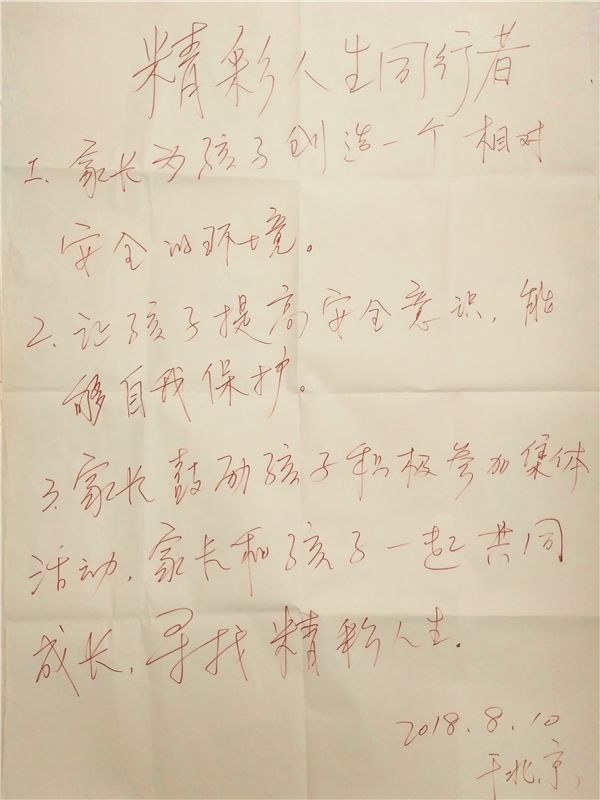 精彩人生同行者
1. 家长为孩子创造一个相对
安全的环境。
2. 让孩子提高安全意识，能
够自我保护。
3. 家长鼓励孩子积极参加集体
活动，家长和孩子一起共同
成长，寻找精彩人生.
2018.8.10
于北京